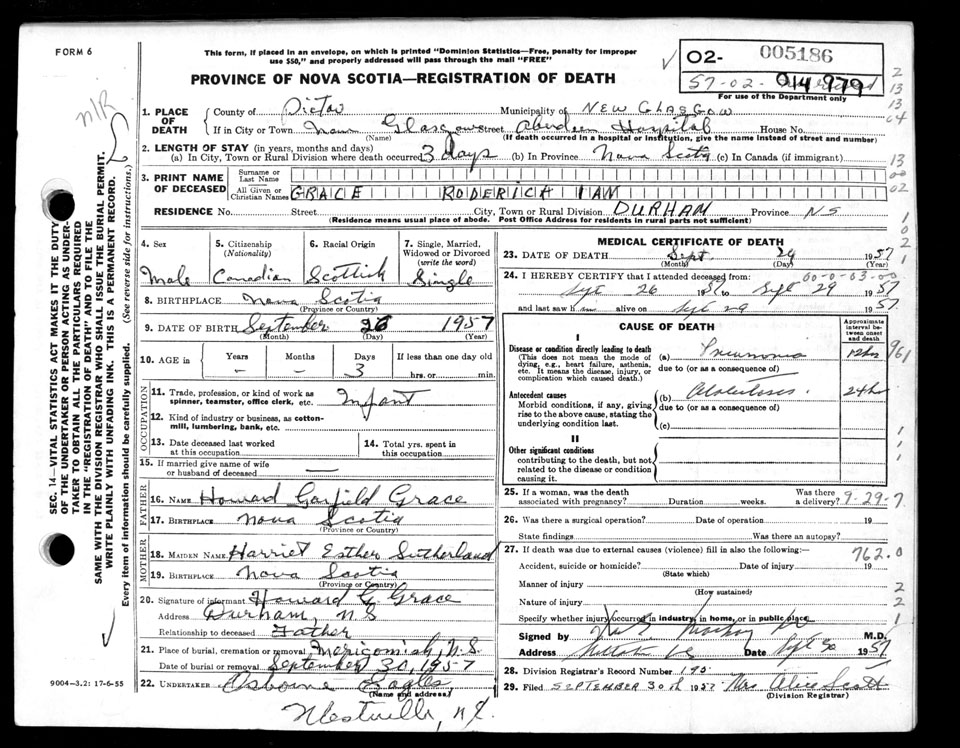 FORM 6
This form, if placed in an envelope, on which is printed "Dominion Statistics—Free, penalty for improper
use $50," and properly addressed will pass through the mail "FREE"
PROVINCE OF NOVA SCOTIA—REGISTRATION OF DEATH
02- 005186
57-02- 014979
For use of the Department only
SEC. 14—VITAL STATISTICS ACT MAKES IT THE DUTY
OF THE UNDERTAKER OR PERSON ACTING AS UNDER-
TAKER TO OBTAIN ALL THE PARTICULARS REQUIRED
IN THE "REGISTRATION OF DEATH" AND TO FILE THE
SAME WITH THE DIVISION REGISTRAR WHO SHALL ISSUE THE BURIAL PERMIT.
WRITE PLAINLY WITH UNFADING INK. THIS IS A PERMANENT RECORD.
Every item of information should be carefully supplied. (See reverse side for instructions.)
9004-3.2: 17-6-55
1. PLACE OF DEATH
County of Pictou Municipality of NEW GLASGOW
If in City or Town New Glasgow street Aberdeen Hospital House No.
(Name) (If death occurred in a hospital or institution, give the name instead of street and number)
2. LENGTH OF STAY (in years, months and days)
(a) In City, Town or Rural Division where death occurred 3 days (b) In Province Nova Scotia (c) In Canada (if immigrant)
3. PRINT NAME OF DECEASED
Surname or Last Name
All Given or Christian Names GRACE RODERICK IAN
RESIDENCE No. Street City, Town or Rural Division DURHAM Province NS
(Residence means usual place of abode. Post Office Address for residents in rural parts not sufficient)
4. Sex 5. Citizenship (Nationality) 6. Racial Origin 7. Single, Married, Widowed or Divorced (write the word)
Male Canadian Scottish Single
8. BIRTHPLACE Nova Scotia
(Province or Country)
9. DATE OF BIRTH September 26 1957
(Month) (Day) (Year)
10. AGE in Years Months Days If less than one day old
- - 3 hrs. or min.
OCCUPATION
11. Trade, profession, or kind of work as spinner, teamster, office clerk, etc. Infant
12. Kind of industry or business, as cotton-mill, lumbering, bank, etc.
13. Date deceased last worked at this occupation 14. Total yrs. spent in this occupation
15. If married give name of wife or husband of deceased —
FATHER
16. NAME Howard Garfield Grace
17. BIRTHPLACE Nova Scotia
(Province or Country)
MOTHER
18. MAIDEN NAME Harriet Esther Sutherland
19. BIRTHPLACE Nova Scotia
(Province or Country)
20. Signature of informant Howard G. Grace
Address Durham, N.S
Relationship to deceased Father
21. Place of burial, cremation or removal Merigomish, N.S.
Date of burial or removal September 30, 1957
22. UNDERTAKER Osborne Eagles,
(Name and address)
Westville, N.S.
MEDICAL CERTIFICATE OF DEATH
23. DATE OF DEATH Sept. 29 1957
(Month) (Day) (Year)
24. I HEREBY CERTIFY that I attended deceased from: 00-0-03-00
Sept 26 1957 to Sept 29 1957
and last saw h alive on Sept 29 1957.
CAUSE OF DEATH
Approximate interval between onset and death
I
Disease or condition directly leading to death (a) Pneumonia 12 hrs
(This does not mean the mode of dying, e.g., heart failure, asthenia, etc. It means the disease, injury, or complication which caused death.)
due to (or as a consequence of)
Antecedent causes (b) Atelectasis. 24 hr
Morbid conditions, if any, giving rise to the above cause, stating the underlying condition last.
due to (or as a consequence of)
(c)
II
Other significant conditions
contributing to the death, but not related to the disease or condition causing it.
25. If a woman, was the death associated with pregnancy? Duration weeks. Was there a delivery? 9-29-7
26. Was there a surgical operation? Date of operation 19
State findings Was there an autopsy?
27. If death was due to external causes (violence) fill in also the following:— 762.0
Accident, suicide or homicide? Date of injury 19
(State which)
Manner of injury
(How sustained)
Nature of injury
Specify whether injury occurred in industry, in home, or in public place
Signed by M.D.
Address Date Sept 30 1957
28. Division Registrar's Record Number 195
29. Filed SEPTEMBER 30th 1957 Mrs Alice Scott
(Division Registrar)